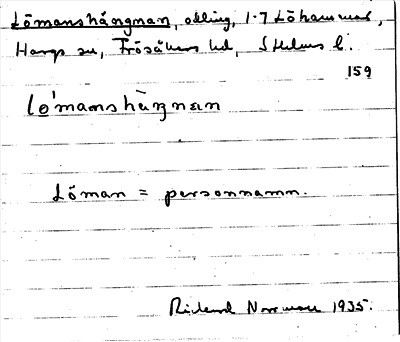 Lömanshängnan, odling, 1:7 Löhammar,
Hargs sn, Frösåkers hd, Sthlms l.
159
lö̀manshàŋnan
Löman = personnamn.
Rickard Norrman 1935.